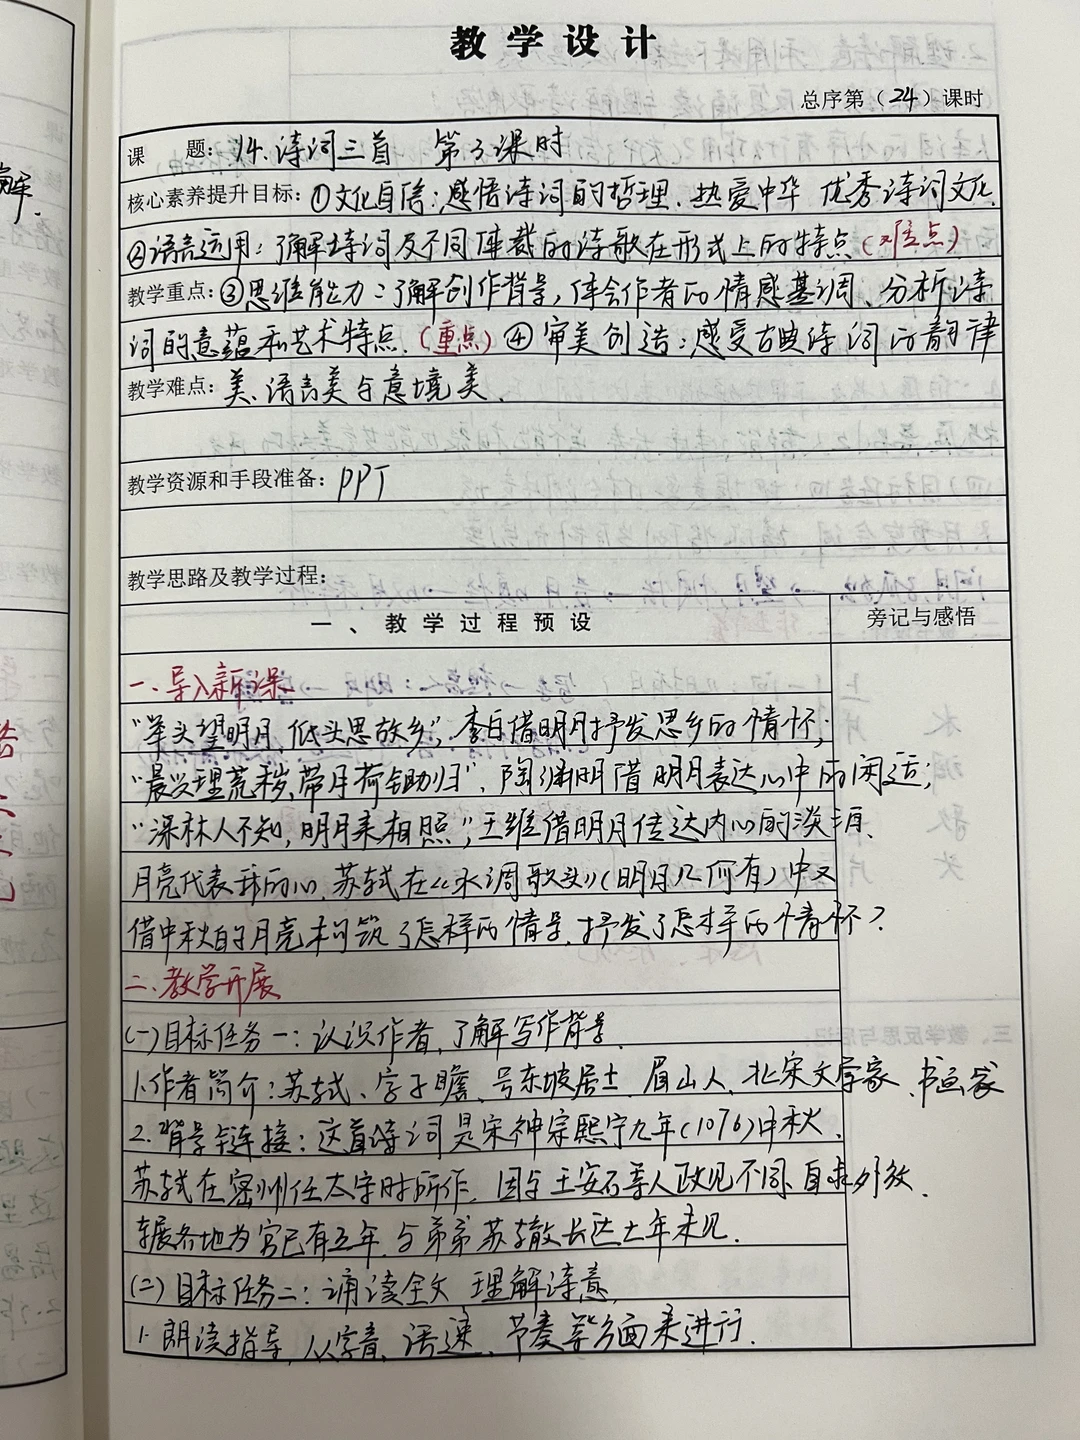 教学设计
总序第（24）课时
课 题：14.诗词三首 第3课时
核心素养提升目标：①文化自信：感悟诗词的哲理，热爱中华优秀诗词文化
②语言运用：了解诗词及不同体裁的诗歌在形式上的特点（难点）
教学重点：③思维能力：了解创作背景，体会作者的情感基调、分析诗
词的意蕴和艺术特点.（重点）④审美创造：感受古典诗词的韵律
教学难点：美、语言美与意境美.
教学资源和手段准备：PPT
教学思路及教学过程：
一、教学过程预设
旁记与感悟
一.导入新课
“举头望明月，低头思故乡”，李白借明月抒发思乡的情怀；
“晨兴理荒秽，带月荷锄归”，陶渊明借明月表达心中的闲适；
“深林人不知，明月来相照”，王维借明月传达内心的淡泊.
月亮代表我的心，苏轼在《水调歌头》（明月几何有）中又
借中秋的月亮构筑了怎样的情景，抒发了怎样的情怀？
二.教学开展
（一）目标任务一：认识作者，了解写作背景.
1.作者简介：苏轼、字子瞻，号东坡居士，眉山人，北宋文学家、书画家
2.背景链接：这首诗词是宋神宗熙宁九年（1076）中秋，
苏轼在密州任太守时所作，因与王安石等人政见不同、自求外放，
辗展各地为官已有五年，与弟弟苏辙长达七年未见.
（二）目标任务二：诵读全文 理解诗意.
1.朗读指导，从字音、语速、节奏等方面来进行.